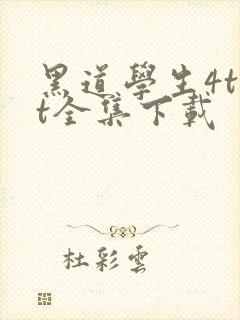 黑道學生4t
t全集下載
杜彩雲